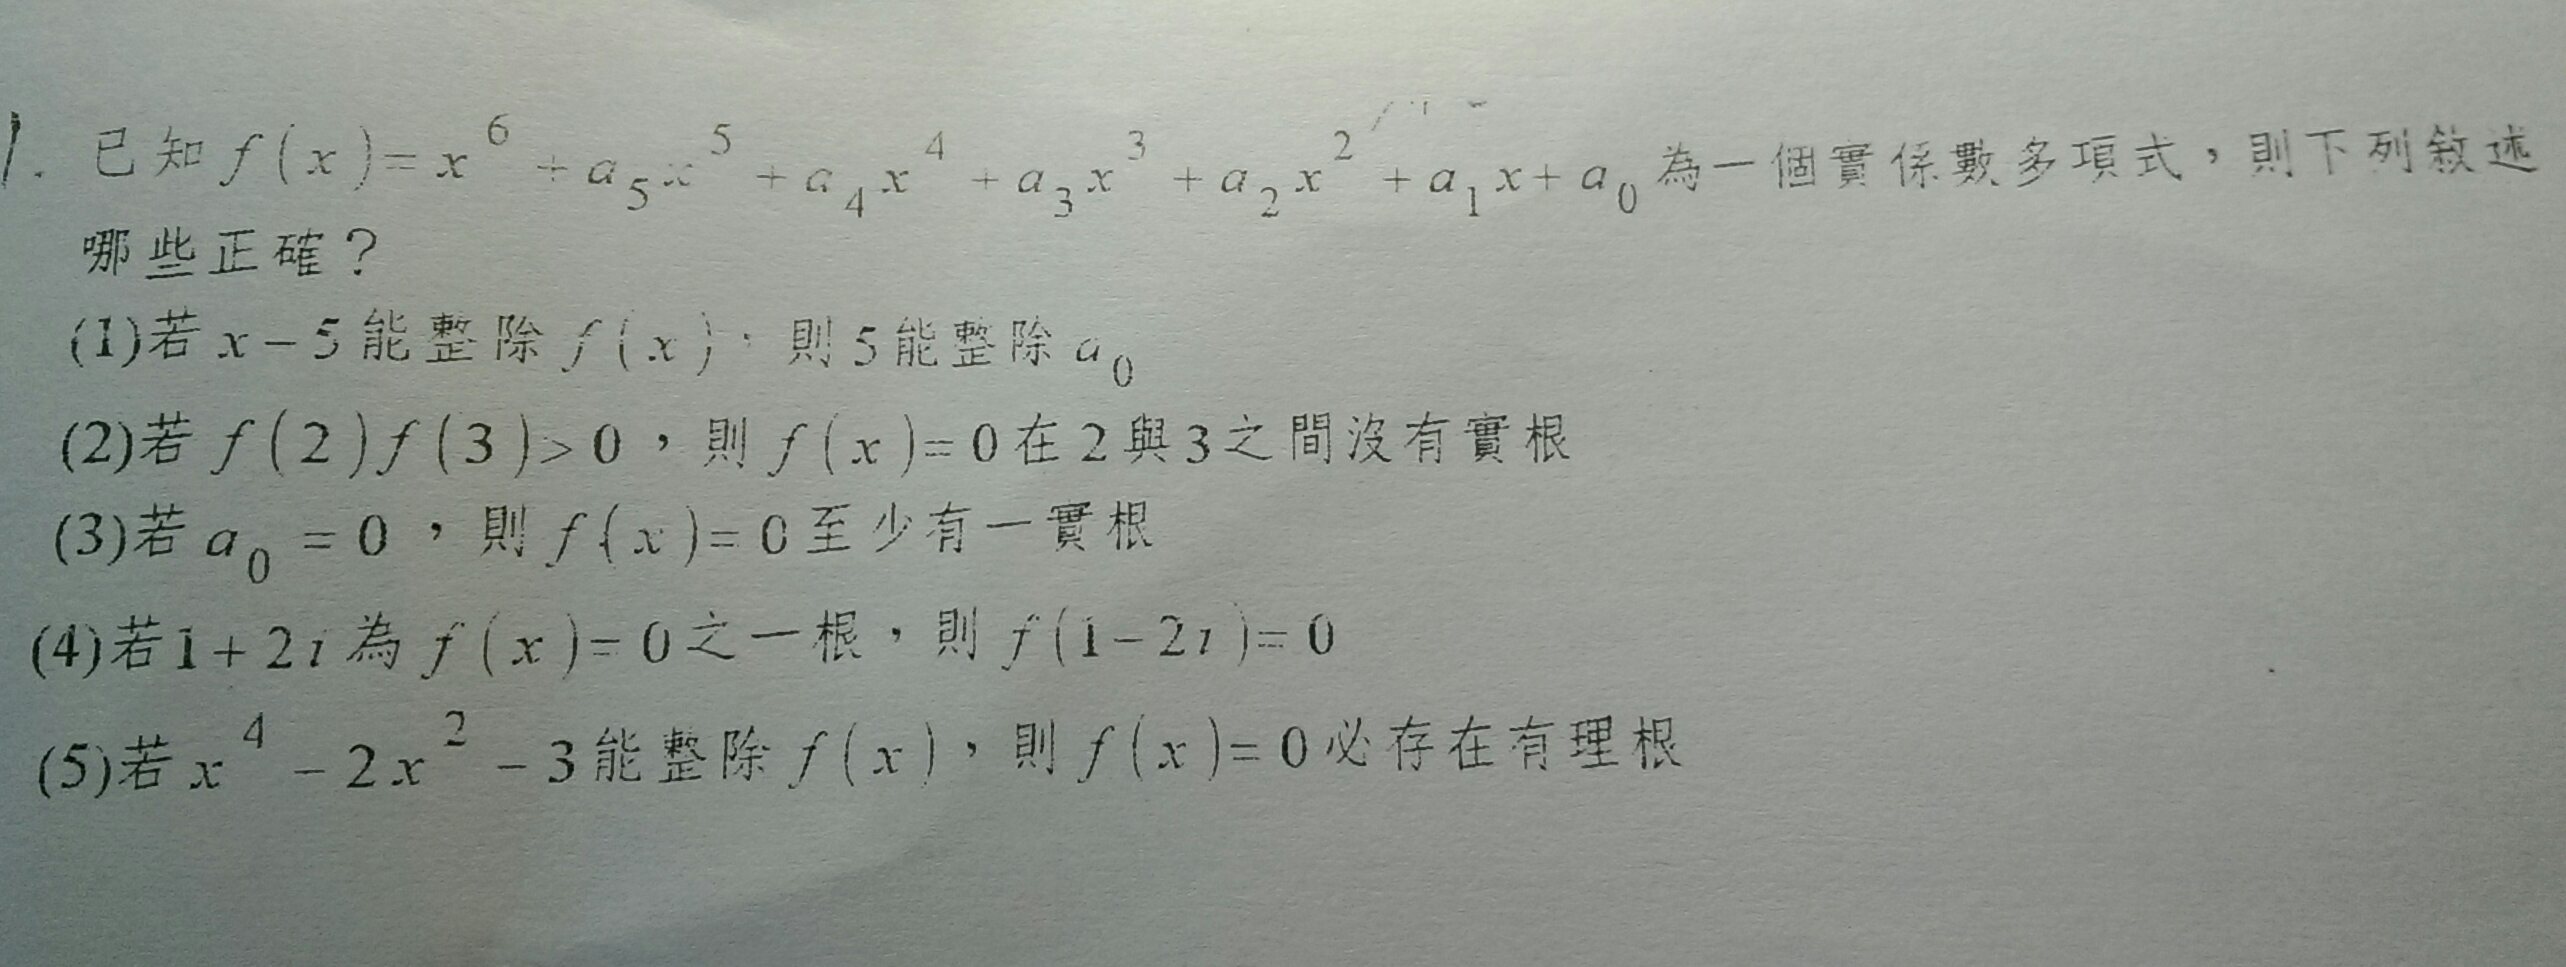 1. 已知 f(x)=x⁶+a₅x⁵+a₄x⁴+a₃x³+a₂x²+a₁x+a₀ 為一個實係數多項式，則下列敘述
哪些正確？
(1)若 x−5 能整除 f(x)，則 5 能整除 a₀
(2)若 f(2)f(3)>0，則 f(x)=0 在 2 與 3 之間沒有實根
(3)若 a₀=0，則 f(x)=0 至少有一實根
(4)若 1+2i 為 f(x)=0 之一根，則 f(1−2i)=0
(5)若 x⁴−2x²−3 能整除 f(x)，則 f(x)=0 必存在有理根